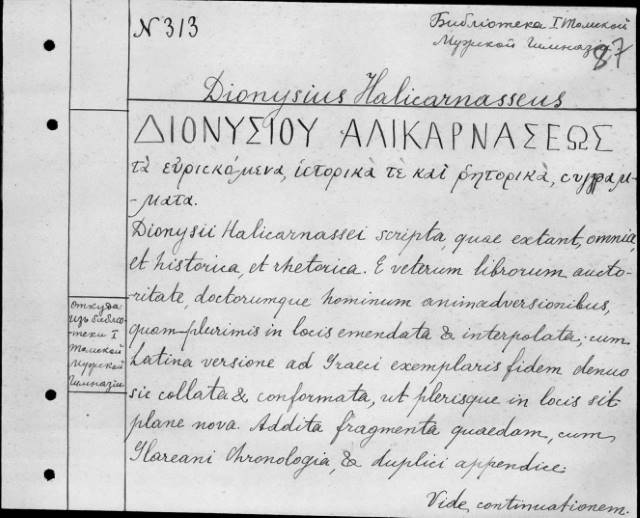 N 313
Библіотека I Томской
Мужской Гимназіи
87
Dionysius Halicarnasseus
ΔΙΟΝΥΣΙΟΥ ΑΛΙΚΑΡΝΑΣΕΩΣ
τὰ εὑρισκόμενα, ἱστορικὰ τὲ καὶ ῥητορικὰ, συγγράμ-
-ματα.
Dionysii Halicarnassei scripta, quae extant, omnia,
et historica, et rhetorica. E veterum librorum aucto-
ritate, doctorumque hominum animadversionibus,
quam plurimis in locis emendata & interpolata; cum
Latina versione ad Graeci exemplaris fidem denuo
sic collata & conformata, ut plerisque in locis sit
plane nova. Addita fragmenta quaedam, cum
Glareani Chronologia, & duplici appendice.
Vide continuationem.
Откуда
Изъ библіо-
теки I
Томской
Мужской
Гимназіи